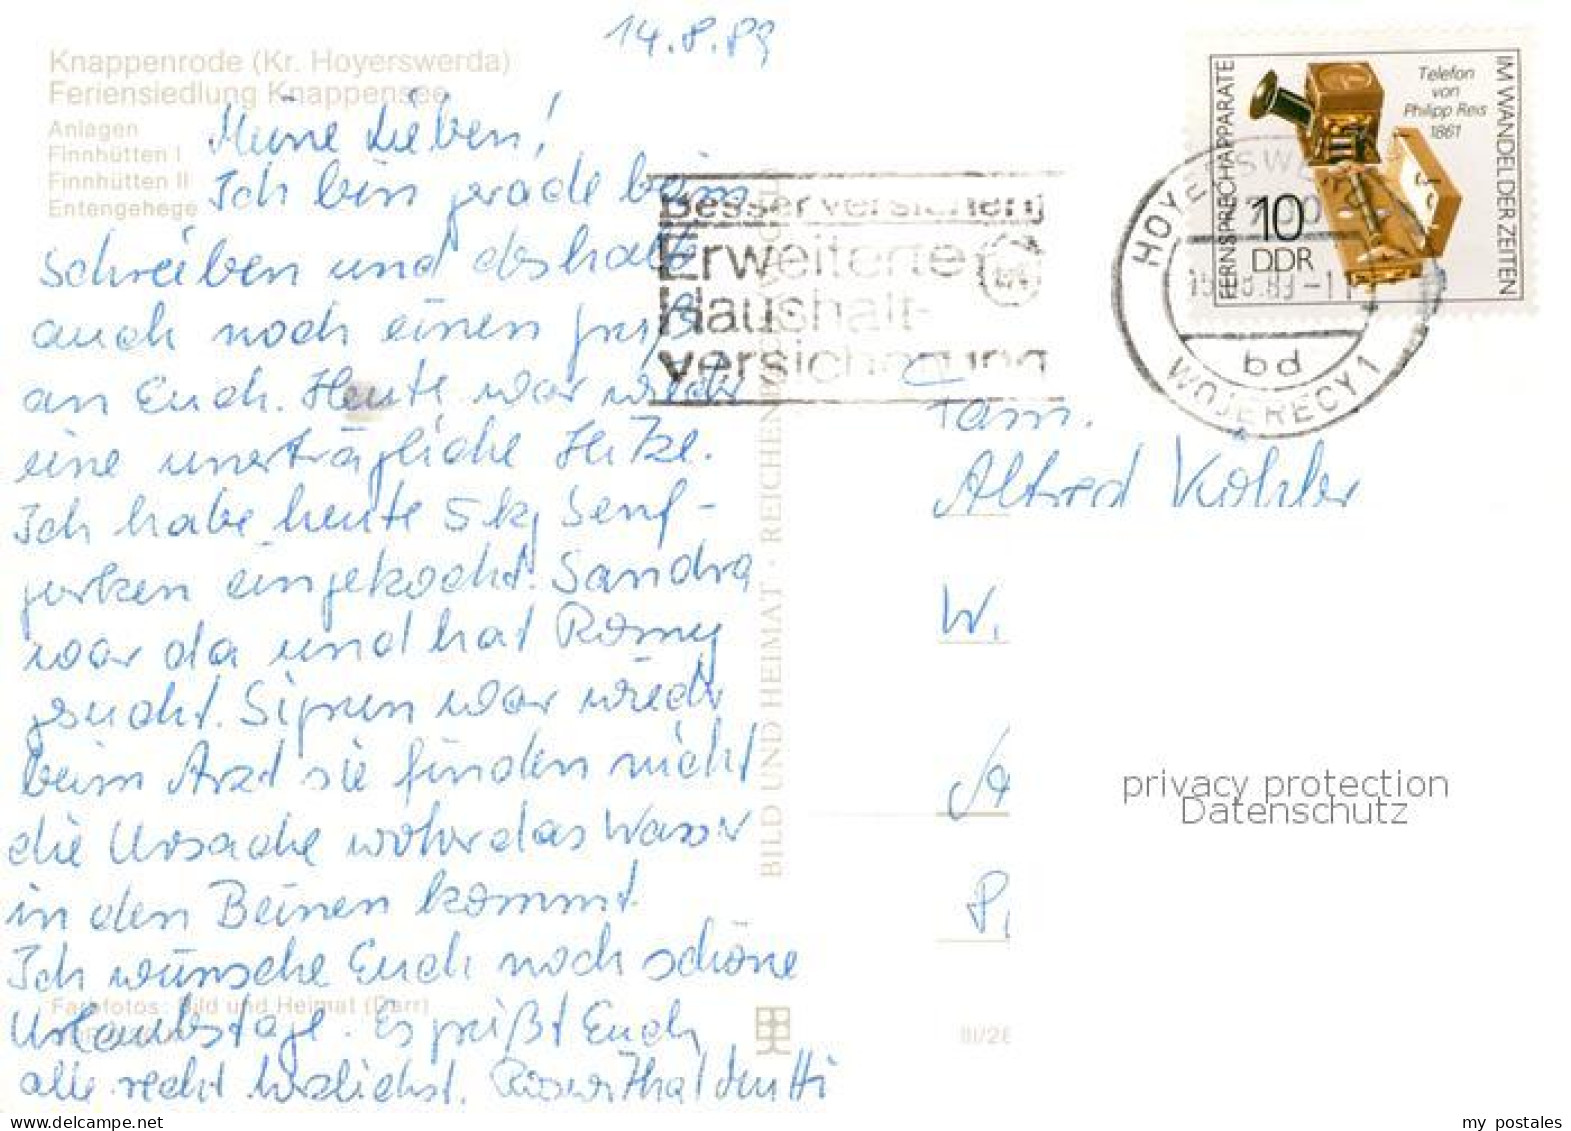 14.8.89
Knappenrode (Kr. Hoyerswerda)
Feriensiedlung Knappensee
Anlagen
Finnhütten I
Finnhütten II
Entengehege
Meine Lieben!
Ich bin grade beim
schreiben und deshalb
auch noch einen Gruß
an Euch. Heute war wieder
eine unerträgliche Hitze.
Ich habe heute 5 kg Senf-
gurken eingekocht. Sandra
war da und hat Romy
gesucht. Sigrun war wieder
beim Arzt sie finden nicht
die Ursache woher das Wasser
in den Beinen kommt.
Ich wünsche Euch noch schöne
Urlaubstage. Es grüßt Euch
alle recht herzlichst. Mutti
Farbfotos: Bild und Heimat (Darr)
BILD UND HEIMAT · REICHENBACH
III/26
Besser versichern
Erweiterte
Haushalt-
versicherung
HOYERSWERDA
15.8.89-11
bd
WOJERECY 1
FERNSPRECHAPPARATE
IM WANDEL DER ZEITEN
Telefon
von
Philipp Reis
1861
10
DDR
Fam.
Alfred Köhler
W.
P.
privacy protection
Datenschutz
my postales